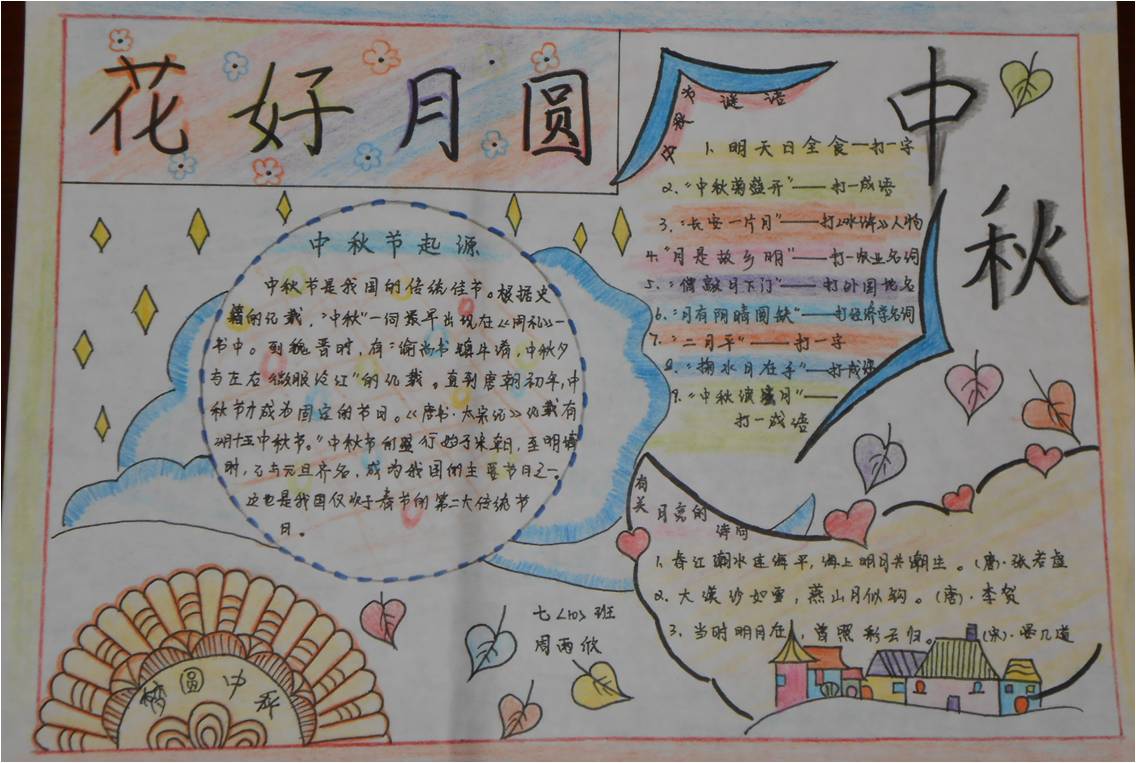 花好月圆
中秋
中秋节起源
中秋节是我国的传统佳节。根据史
籍的记载，“中秋”一词最早出现在《周礼》一
书中。到魏晋时，有“谕尚书镇牛渚，中秋夕
与左右微服泛江”的记载。直到唐朝初年，中
秋节才成为固定的节日。《唐书·太宗记》记载有
“八月十五中秋节。”中秋节的盛行始于宋朝，至明清
时，已与元旦齐名，成为我国的主要节日之一。
这也是我国仅次于春节的第二大传统节
日。
中秋节谜语
1、明天日全食——打一字
2、“中秋菊盛开”——打一成语
3、“长安一片月”——打《水浒》人物
4、“月是故乡明”——打一农业名词
5、“僧敲月下门”——打外国地名
6、“月有阴晴圆缺”——打经济学名词
7、“二月平”——打一字
8、“掬水月在手”——打成语
9、“中秋演蜜月”——
打一成语
有关月亮的
诗句
1、春江潮水连海平，海上明月共潮生。（唐）·张若虚
2、大漠沙如雪，燕山月似钩。（唐）·李贺
3、当时明月在，曾照彩云归。（宋）·晏几道
七<10>班
周雨欣
梦圆中秋